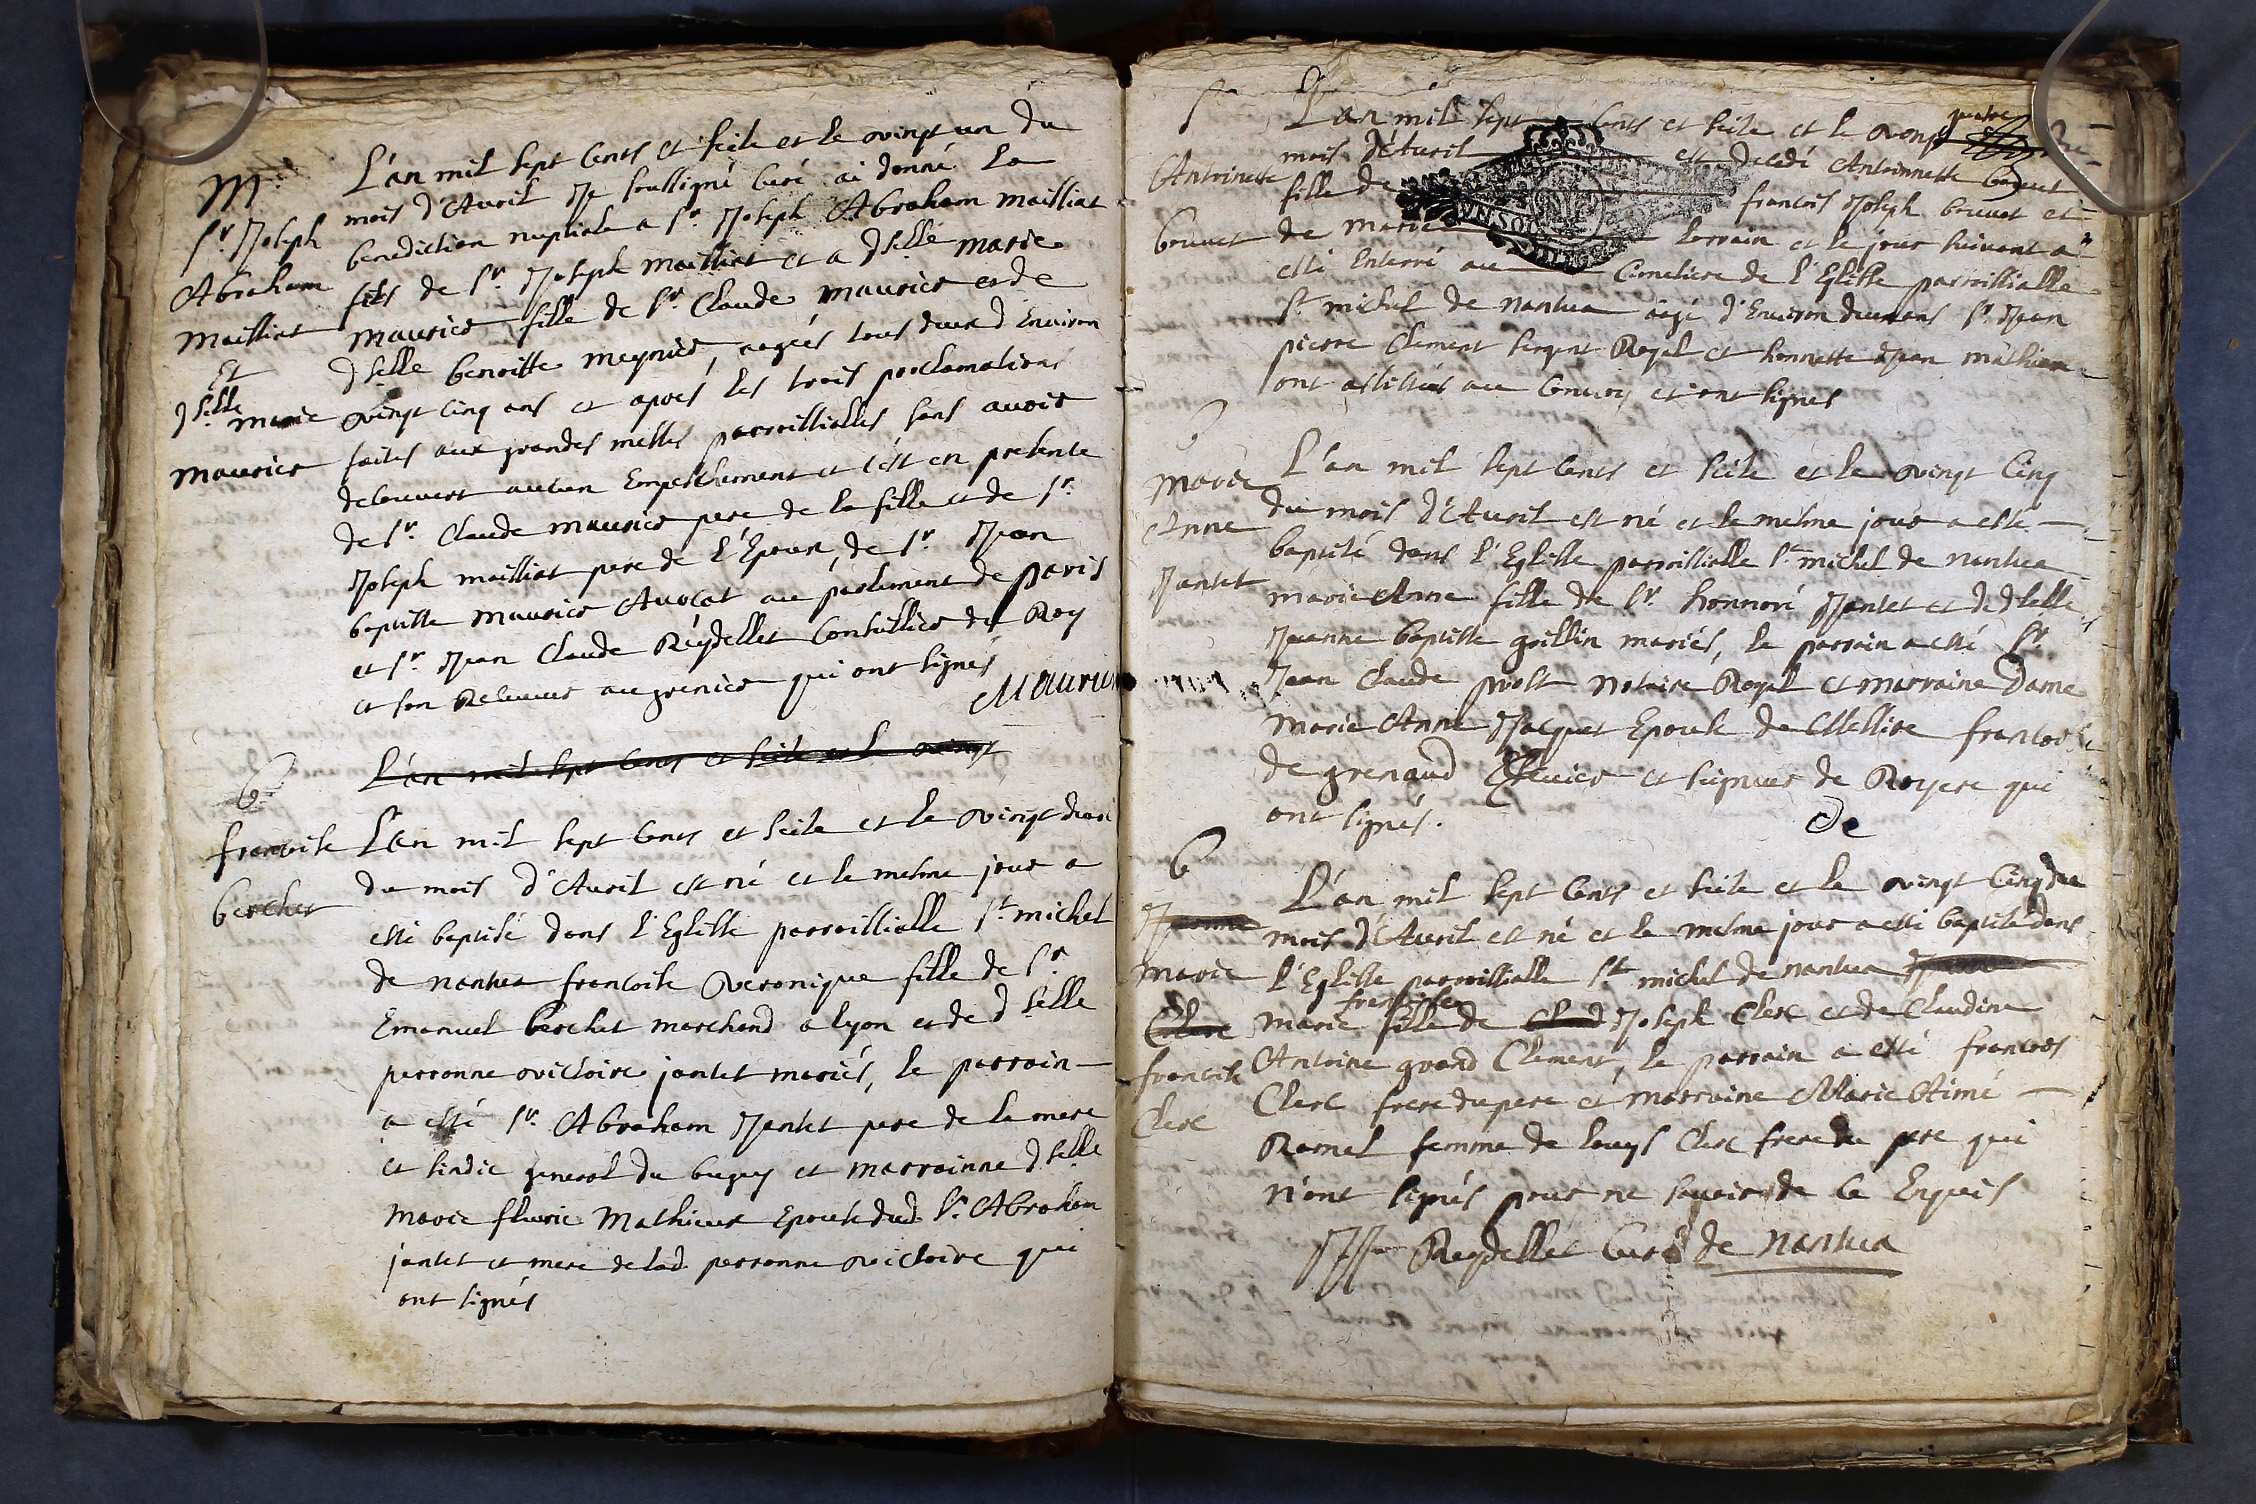 M.
Sr. Joseph
Abraham
Mailliat
Et
dselle. marie
maurice
L'an mil sept Cents et seize et le vingt un du
mois d'Auril Je soussigné Curé ai donné La
benediction nuptiale a Sr. Joseph Abraham mailliat
fils de Sr. Joseph mailliat et a dselle marie
maurice fille de Sr. Claude maurice et de
dselle benoitte meynier, aagés tous deux d'Environ
vingt Cinq ans et apres les trois proclamations
faites aux grandes messes parroissialles sans avoir
decouvert aucun Empeschement et c'est en presente
de Sr. Claude maurice pere de la fille et de Sr.
Joseph mailliat pere de l'Epoux, de Sr. Jean
baptiste maurice Avocat au parlement de paris
et Sr. Jean Claude Reydellet Conseillier du Roy
et son Receueur au grenier qui ont signés
Mauric
L'an mil sept Cents et seize et le vingt
B
francoise
berchet
L'an mil sept Cents et seize et le vingt deux
du mois d'Auril est né et le mesme jour a
esté baptisé dans l'Eglisse parroissialle St. michel
de nantua francoise veronique fille de Sr.
Emanuel berchet marchand a lyon et de dselle
perronne victoire jantet mariés, le parrain
a esté Sr. Abraham Jantet pere de la mere
et sindic general du bugey et marrainne dselle
Marie fleurie Mathieux Epouse dud. Sr. Abraham
jantet et mere de lad. perronne victoire qui
ont signés
S
Antoinette
bouuet
L'an mil sept Cents et seize et le vingt quatre
mois d'Auril est decedé Antoinnette bouuet
fille de francois Joseph bouuet et
de marie Lorrain et le jour suivant a
esté Enterré au Cimetiere de l'Eglisse parroissialle
St. michel de nantua aagé d'Environ deux ans Sr. Jean
pierre Clement sergent Royal et honnette Jean mathieu
ont assistés au Convoy et ont signés
B
Marie
Anne
Jantet
L'an mil sept Cents et seize et le vingt Cinq
du mois d'Auril est né et le mesme jour a esté
baptisé dans l'Eglisse parroissialle St. michel de nantua
marie Anne fille de Sr. honnoré Jantet et de dselle
Jeanne baptiste goillin mariés, le parrain a esté Sr.
Jean Claude prost Notaire Royal et marraine Dame
Marie Anne Jacquet Epouse de Messire francois
de grenaud Cheuier et seigneur de Royere qui
ont signés.
De
B
Jeanne
marie
Clerc
francoise
Clerc
L'an mil sept Cents et seize et le vingt Cinq du
mois d'Auril est né et le mesme jour a esté baptisé dans
l'Eglisse parroissialle St. michel de nantua
marie francoise fille de Claud Joseph Clerc et de Claudine
Antoine grand Clement, le parrain a esté francois
Clerc frere du pere et marraine Marie Aimé
Ramel femme de Louys Clerc frere du pere qui
n'ont signés pour ne sçavoir de Ce Enquis
Reydellet Curé de Nantua